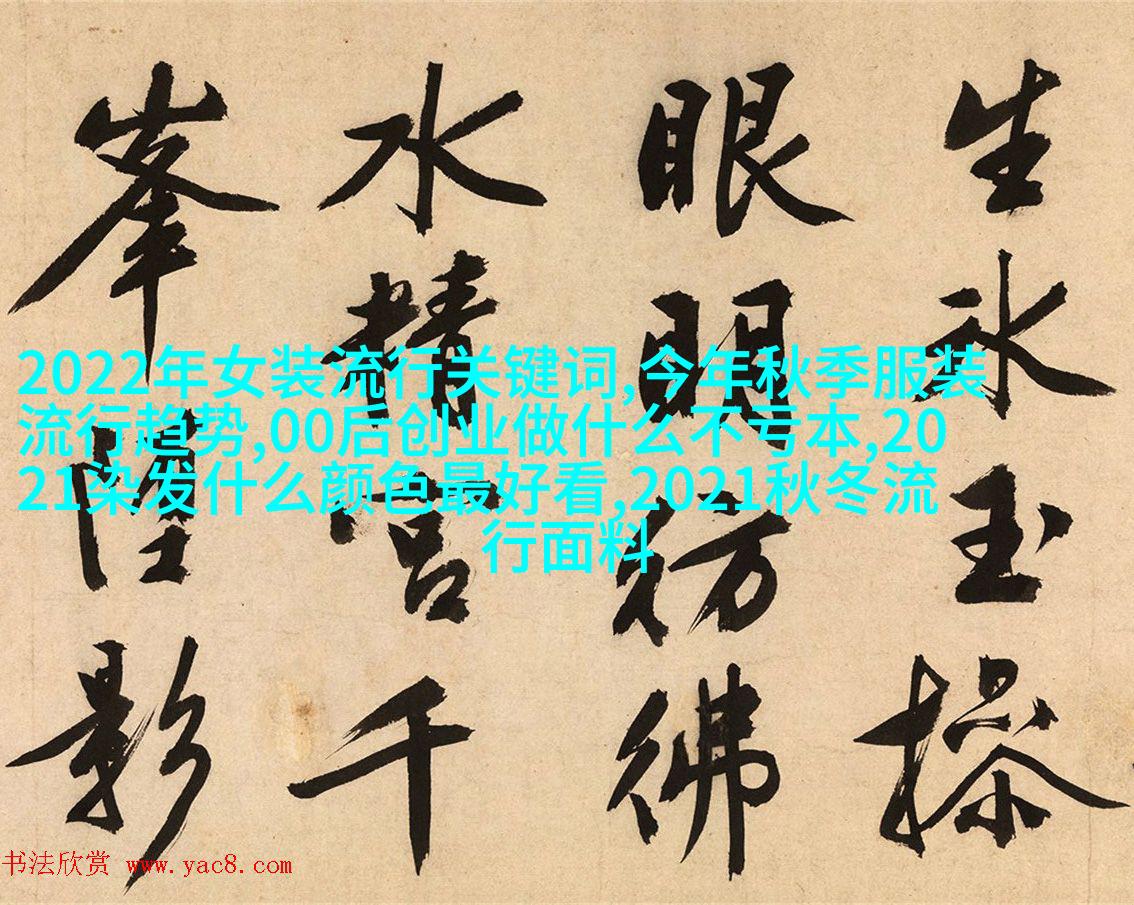 生氷玉操
眼明彷彿
水精宮千
峯影
2022年女装流行关键词,今年秋季服装
流行趋势,00后创业做什么不亏本,20
21染发什么颜色最好看,2021秋冬流
行面料
书法欣赏 www.yac8.com